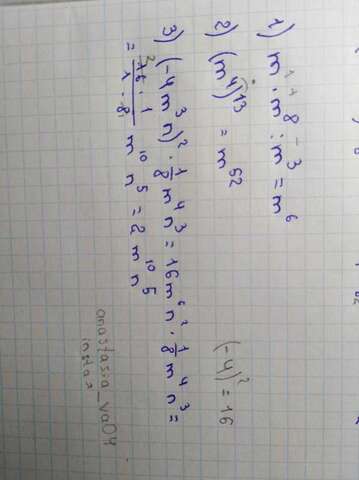 1) m · m⁸ : m³ = m⁶
2) (m⁴)¹³ = m⁵²
(-4)² = 16
3) (-4m³n)² · 1/8 m⁴n³ = 16m⁶n² · 1/8 m⁴n³ =
= 16·1/1·8 m¹⁰n⁵ = 2m¹⁰n⁵
anastasia_va04
insta